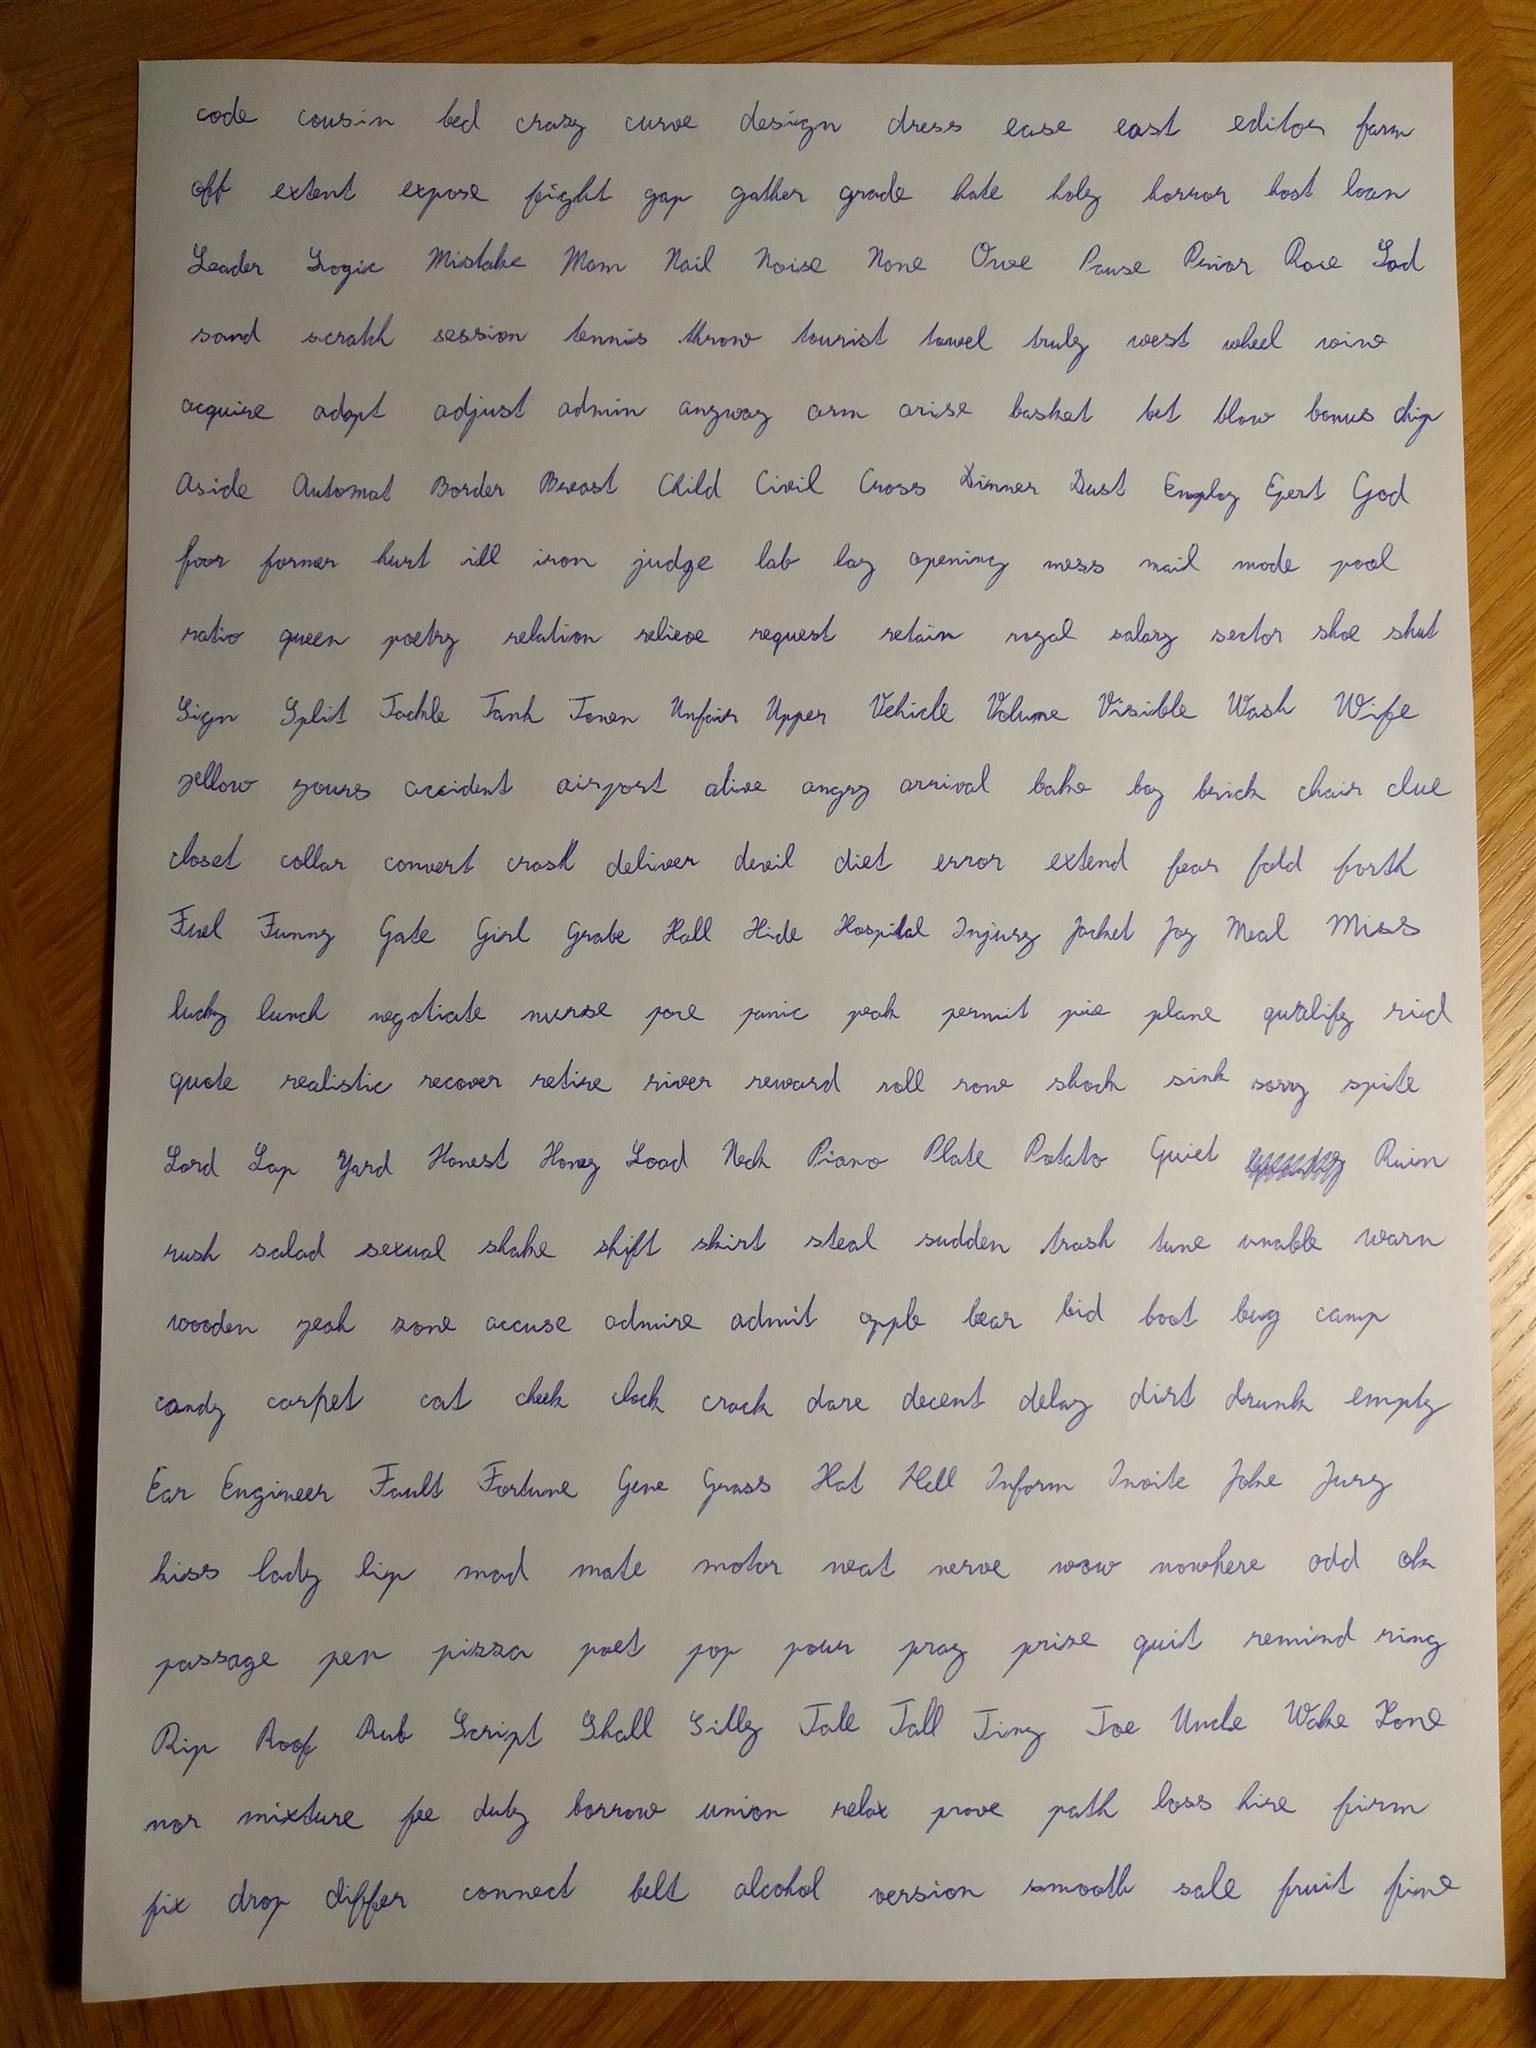 code cousin bed crazy curve design dress ease east editor farm
off extent expose fight gap gather grade hate holy horror host loan
Leader Logic Mistake Mom Nail Noise None Owe Pause Prior Race Sad
sand scratch session tennis throw tourist towel truly west wheel wine
acquire adopt adjust admin anyway arm arise basket bet blow bonus chip
Aside Automat Border Breast Child Civil Cross Dinner Dust Employ Expert God
foor former hurt ill iron judge lab lay opening mess mail mode pool
ratio queen poetry relation relieve request retain royal salary sector shoe shut
Sign Split Tackle Tank Unfair Upper Vehicle Volume Visible Wash Wife
yellow yours accident airport alive angry arrival bake boy brick chair clue
closet collar convert crash deliver devil diet error extend fear fold forth
Fuel Funny Gate Girl Grabe Hall Hide Hospital Injury Jacket Joy Meal Miss
lucky lunch negotiate nurse pace panic peak permit pie plane qualify rid
quote realistic recover retire river reward roll row shock sink sorry spite
Lord Lap Yard Honest Honey Load Neck Piano Plate Potato Quiet Ruin
rush salad sexual shake shift skirt steal sudden trash tune unable warn
wooden yeah zone accuse admire admit apple bear bid boot bug camp
candy carpet cat cheek clock crack dare decent delay dirt drunk empty
Ear Engineer Fault Fortune Gene Grass Hat Hell Inform Invite Joke Jury
kiss lady lip mad mate motor neat nerve wow nowhere odd ok
passage pen pizza poet pop pour pray prize quit remind ring
Rip Roof Rub Script Shall Silly Tale Tall Tiny Toe Uncle Wake Zone
nor mixture fee duty borrow union relax prove path loss hire firm
fix drop differ connect belt alcohol version smooth sale fruit fine